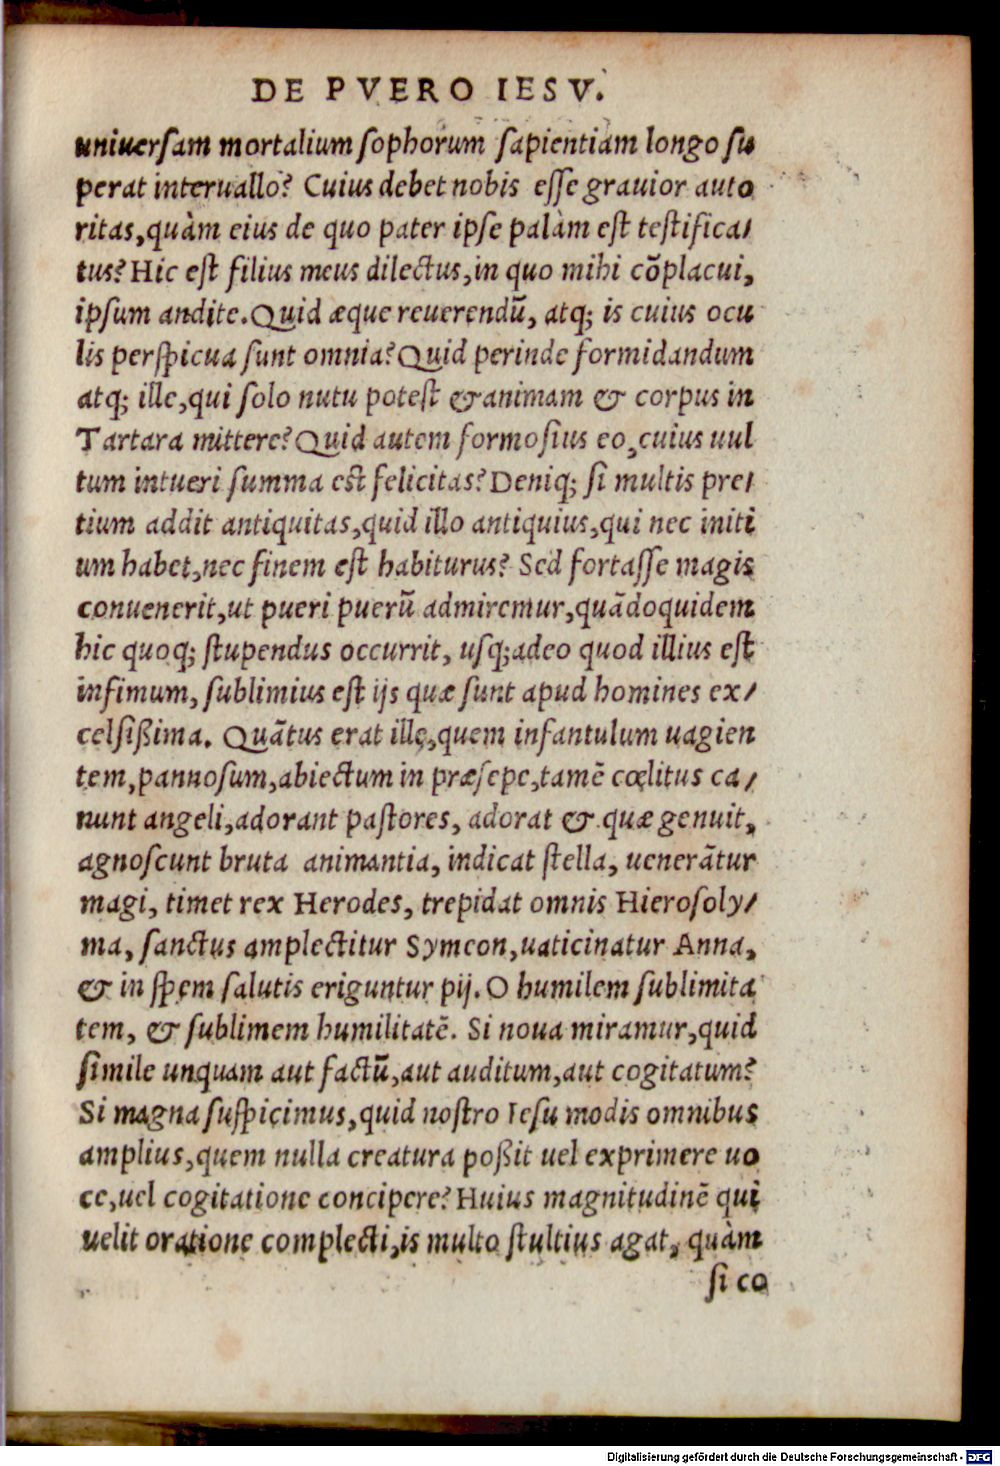 DE PVERO IESV.
uniuersam mortalium sophorum sapientiam longo su
perat interuallo? Cuius debet nobis esse grauior auto
ritas, quàm eius de quo pater ipse palàm est testifica/
tus? Hic est filius meus dilectus, in quo mihi cōplacui,
ipsum andite. Quid æque reuerendū, atq; is cuius ocu
lis perspicua sunt omnia? Quid perinde formidandum
atq; ille, qui solo nutu potest & animam & corpus in
Tartara mittere? Quid autem formosius eo, cuius uul
tum intueri summa est felicitas? Deniq; si multis pre/
tium addit antiquitas, quid illo antiquius, qui nec initi
um habet, nec finem est habiturus? Sed fortasse magis
conuenerit, ut pueri puerū admiremur, quādoquidem
hic quoq; stupendus occurrit, usq; adeo quod illius est
infimum, sublimius est ijs quæ sunt apud homines ex/
celsißima. Quātus erat ille, quem infantulum uagien
tem, pannosum, abiectum in præsepe, tamē cœlitus ca/
nunt angeli, adorant pastores, adorat & quæ genuit,
agnoscunt bruta animantia, indicat stella, uenerātur
magi, timet rex Herodes, trepidat omnis Hierosoly/
ma, sanctus amplectitur Symeon, uaticinatur Anna,
& in spem salutis eriguntur pij. O humilem sublimita
tem, & sublimem humilitatē. Si noua miramur, quid
simile unquam aut factū, aut auditum, aut cogitatum?
Si magna suspicimus, quid nostro Iesu modis omnibus
amplius, quem nulla creatura poßit uel exprimere uo
ce, uel cogitatione concipere? Huius magnitudinē qui
uelit oratione complecti, is multo stultius agat, quàm
si co
Digitalisierung gefördert durch die Deutsche Forschungsgemeinschaft - DFG